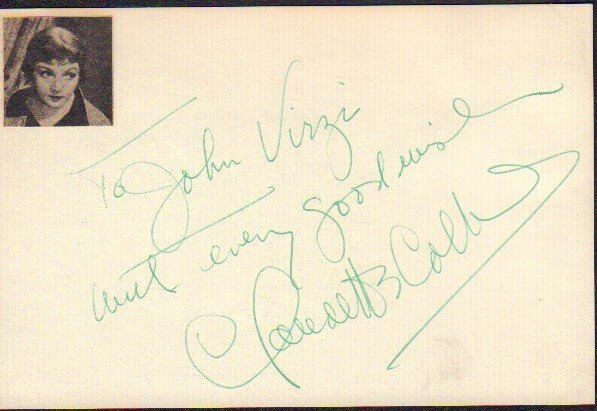 To John Virzi
with every good wish
Claudette Colbert